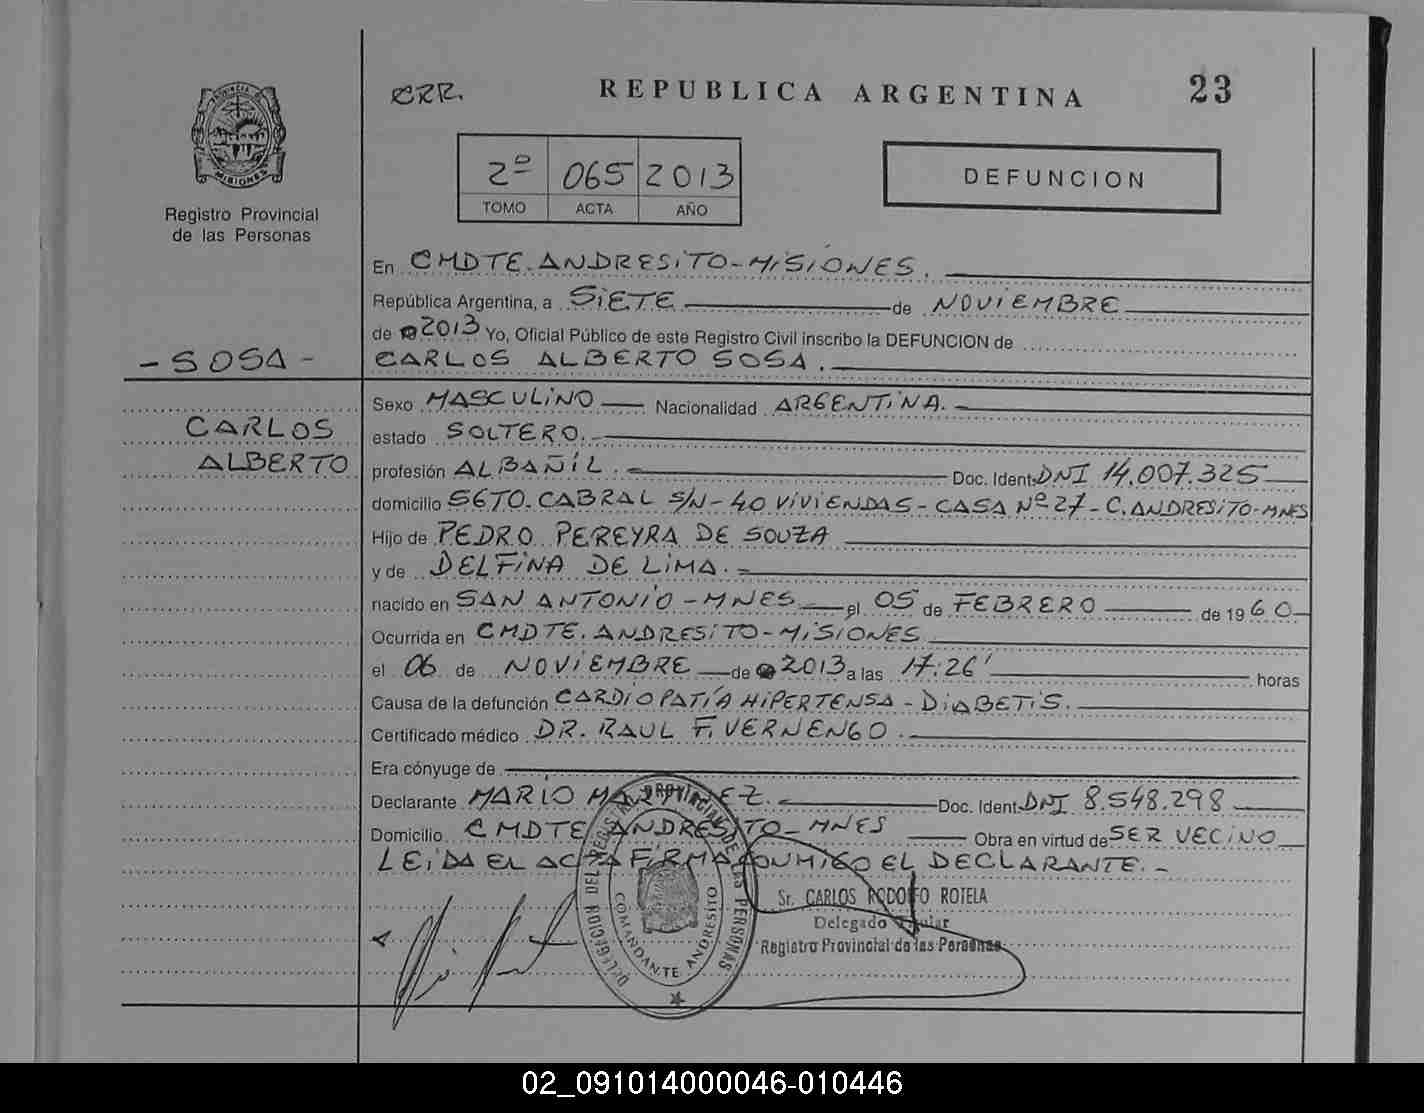 CRR.
REPUBLICA ARGENTINA
23
PROVINCIA DE
MISIONES
Registro Provincial
de las Personas
2º 065 2013
TOMO ACTA AÑO
DEFUNCION
En CMDTE. ANDRESITO - MISIONES.
República Argentina, a SIETE de NOVIEMBRE
de 2013 Yo, Oficial Público de este Registro Civil inscribo la DEFUNCION de
- SOSA - CARLOS ALBERTO SOSA.
Sexo MASCULINO Nacionalidad ARGENTINA.
CARLOS estado SOLTERO.
ALBERTO profesión ALBAÑIL. Doc. Ident. DNI 14.007.325
domicilio SGTO. CABRAL S/N - 40 VIVIENDAS - CASA Nº 27 - C. ANDRESITO - MNES
Hijo de PEDRO PEREYRA DE SOUZA
y de DELFINA DE LIMA.
nacido en SAN ANTONIO - MNES el 05 de FEBRERO de 1960
Ocurrida en CMDTE. ANDRESITO - MISIONES
el 06 de NOVIEMBRE de 2013 a las 17:26' horas
Causa de la defunción CARDIOPATÍA HIPERTENSA - DIABETIS.
Certificado médico DR. RAUL F. VERNENGO.
Era cónyuge de
Declarante MARIO MARTINEZ. Doc. Ident. DNI 8.548.298
Domicilio CMDTE ANDRESITO - MNES Obra en virtud de SER VECINO
LEIDA EL ACTA FIRMA CONMIGO EL DECLARANTE. -
DELEGACION DEL REGISTRO PROVINCIAL DE LAS PERSONAS
COMANDANTE ANDRESITO
Sr. CARLOS RODOLFO ROTELA
Delegado Titular
Registro Provincial de las Personas
02_091014000046-010446